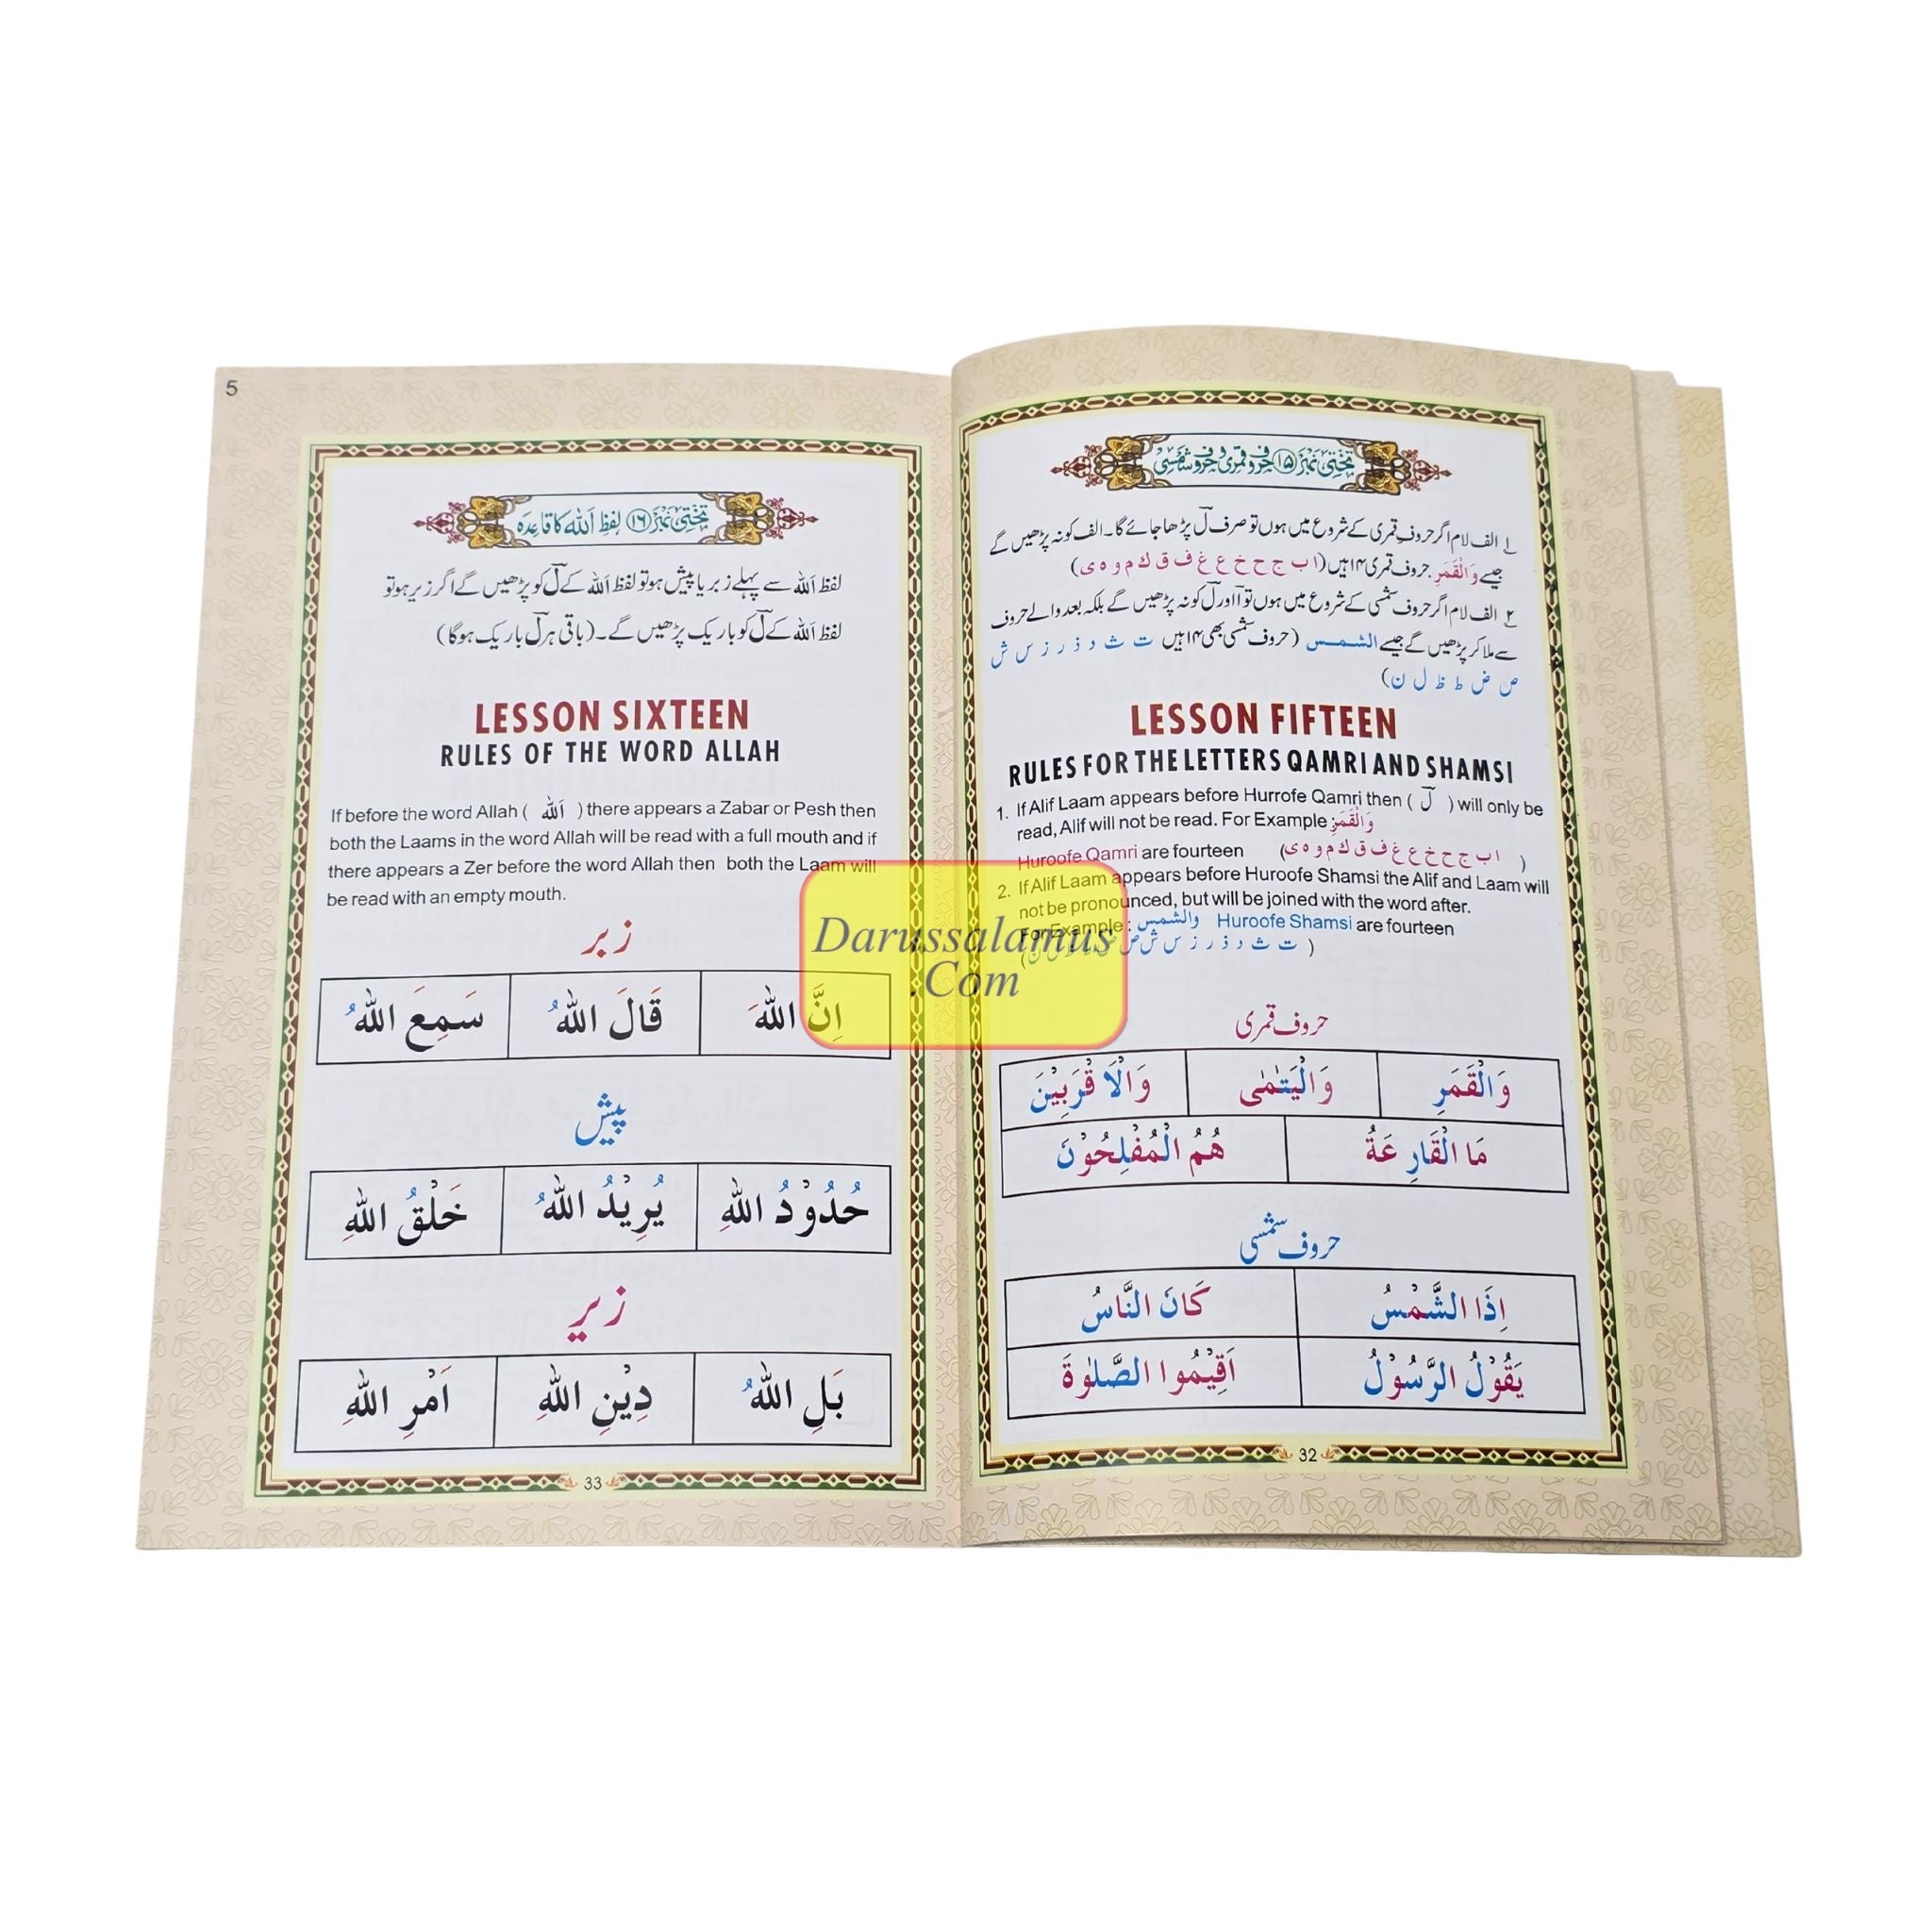 تختی نمبر ۱۵ حروف قمری و حروف شمسی
۱ الف لام اگر حروف قمری کے شروع میں ہوں تو صرف لٓ پڑھا جائے گا۔ الف کو نہ پڑھیں گے
جیسے وَالْقَمَرِ حروف قمری ۱۴ ہیں (ا ب ج ح خ ع غ ف ق ک م و ہ ی)
۲ الف لام اگر حروف شمسی کے شروع میں ہوں تو آ اور لٓ کو نہ پڑھیں گے بلکہ بعد والے حروف
سے ملا کر پڑھیں گے جیسے الشمس (حروف شمسی بھی ۱۴ ہیں ت ث د ذ ر ز س ش
ص ض ط ظ ل ن)
LESSON FIFTEEN
RULES FOR THE LETTERS QAMRI AND SHAMSI
1. If Alif Laam appears before Hurrofe Qamri then ( لٓ ) will only be
read, Alif will not be read. For Example وَالْقَمَرِ
Huroofe Qamri are fourteen (ا ب ج ح خ ع غ ف ق ك م و ه ى )
2. If Alif Laam appears before Huroofe Shamsi the Alif and Laam will
not be pronounced, but will be joined with the word after.
For Example : والشمس Huroofe Shamsi are fourteen
( ت ث د ذ ر ز س ش ص
حروف قمری
وَالْقَمَرِ وَالْيَتٰمٰى وَالْاَقْرَبِيْنَ
مَا الْقَارِعَةُ هُمُ الْمُفْلِحُوْنَ
حروف شمسی
اِذَا الشَّمْسُ كَانَ النَّاسُ
يَقُوْلُ الرَّسُوْلُ اَقِيْمُوا الصَّلٰوةَ
32
5
تختی نمبر ۱۶ لفظ اَللہ کا قاعدہ
لفظ اَللہ سے پہلے زبر یا پیش ہو تو لفظ اَللہ کے لٓ کو پر پڑھیں گے اگر زیر ہو تو
لفظ اَللہ کے لٓ کو باریک پڑھیں گے۔ (باقی ہر لٓ باریک ہوگا)
LESSON SIXTEEN
RULES OF THE WORD ALLAH
If before the word Allah ( اَللہ ) there appears a Zabar or Pesh then
both the Laams in the word Allah will be read with a full mouth and if
there appears a Zer before the word Allah then both the Laam will
be read with an empty mouth.
زبر
اِنَّ اللّٰهَ قَالَ اللّٰهُ سَمِعَ اللّٰهُ
پیش
حُدُوْدُ اللّٰهِ يُرِيْدُ اللّٰهُ خَلْقُ اللّٰهِ
زیر
بَلِ اللّٰهُ دِيْنِ اللّٰهِ اَمْرِ اللّٰهِ
33
Darussalamus
.Com